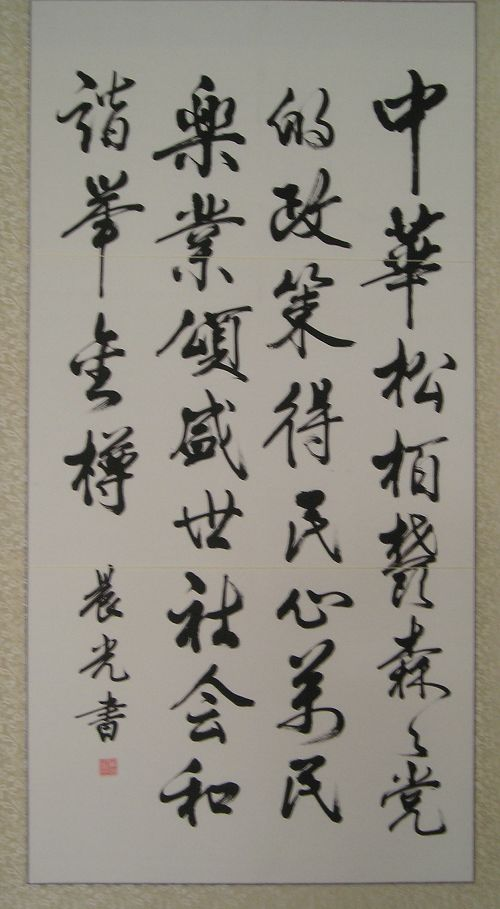 中華松柏鬱森々党
的政策得民心万民
樂業頌盛世社会和
諧举金樽
晨光書